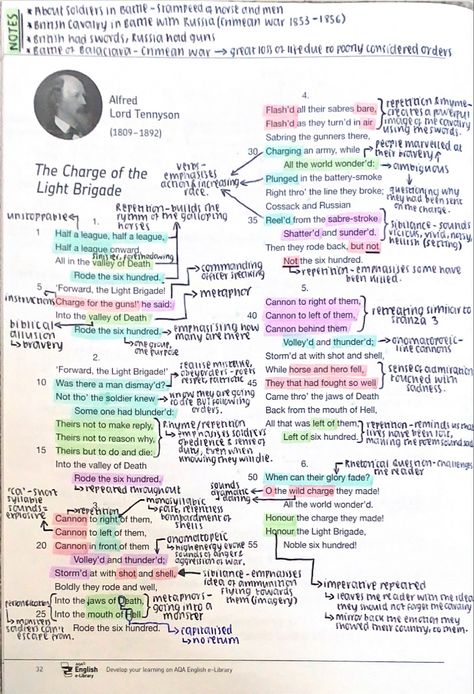 NOTES
* About soldiers in Battle - Stampeed of horse and men
* British Cavalry in Battle with Russia (Crimean war 1853 - 1856)
* British had swords, Russia had guns
* Battle of Balaclava - Crimean war → great loss of life due to poorly considered orders
Alfred
Lord Tennyson
(1809–1892)
The Charge of the
Light Brigade
verbs - emphasises action & increasing race.
Repetition - builds the rhythm of the galloping horses
unstoppable
1.
1 Half a league, half a league,
Half a league onward,
sinister, foreshadowing
All in the valley of Death
Rode the six hundred.
5 'Forward, the Light Brigade!
commanding officer speaking
instructions
Charge for the guns!' he said:
metaphor
Into the valley of Death
biblical allusion
→ bravery
Rode the six hundred.
emphasising how many are there
one group, one purpose
2.
'Forward, the Light Brigade!'
10 Was there a man dismay'd?
realise mistake, obey orders - poets respect, patriotic
Not tho' the soldier knew
know they are going to die but following orders.
Some one had blunder'd:
Theirs not to make reply,
Theirs not to reason why,
15 Theirs but to do and die:
Rhyme/repetition
→ emphasises soldiers obedience & sense of duty, even when knowing they will die.
Into the valley of Death
Rode the six hundred.
→ repeated throughout
3.
"Ca" - short syllable sounds = explosive
repetition
monosyllabic - fast, relentless bombardment of shells
Cannon to right of them,
Cannon to left of them,
20 Cannon in front of them
Volley'd and thunder'd;
onomatopoeic
→ high energy evoke sounds of dangers aggression of war.
Storm'd at with shot and shell,
sibilance - emphasises idea of ammunition flying towards them (imagery)
Boldly they rode and well,
personification
→ monster
soldiers can't escape from.
Into the jaws of Death,
25 Into the mouth of Hell
metaphors - going into a monster
Rode the six hundred.
capitalised
→ no return
4.
Flash'd all their sabres bare,
Flash'd as they turn'd in air
repetition & rhyme creates a powerful image of the cavalry using the swords.
Sabring the gunners there,
30 Charging an army, while
people marvelled at their bravery
All the world wonder'd:
→ ambiguous
Plunged in the battery-smoke
questioning why they had been sent on the charge.
Right thro' the line they broke;
Cossack and Russian
35 Reel'd from the sabre-stroke
Shatter'd and sunder'd.
sibilance - sounds vicious, vivid, noisy, hellish (setting)
Then they rode back, but not
Not the six hundred.
→ repetition - emphasises some have been killed.
5.
Cannon to right of them,
40 Cannon to left of them,
Cannon behind them
retreating similar to stanza 3
Volley'd and thunder'd;
onomatopoeic - like cannons
Storm'd at with shot and shell,
While horse and hero fell,
45 They that had fought so well
sense of admiration touched with sadness.
Came thro' the jaws of Death
Back from the mouth of Hell,
All that was left of them,
Left of six hundred.
repetition - reminds us that lives have been lost, making the poem sound sad
6.
Rhetorical question - challenges the reader
50 When can their glory fade?
O the wild charge they made!
sounds dramatic + daring
All the world wonder'd.
Honour the charge they made!
Honour the Light Brigade,
55 Noble six hundred!
imperative repeated
→ leaves the reader with the idea they should not forget the cavalry
→ mirror back the emotion they showed their country, to them.
32
AQA English e-Library
Develop your learning on AQA English e-Library